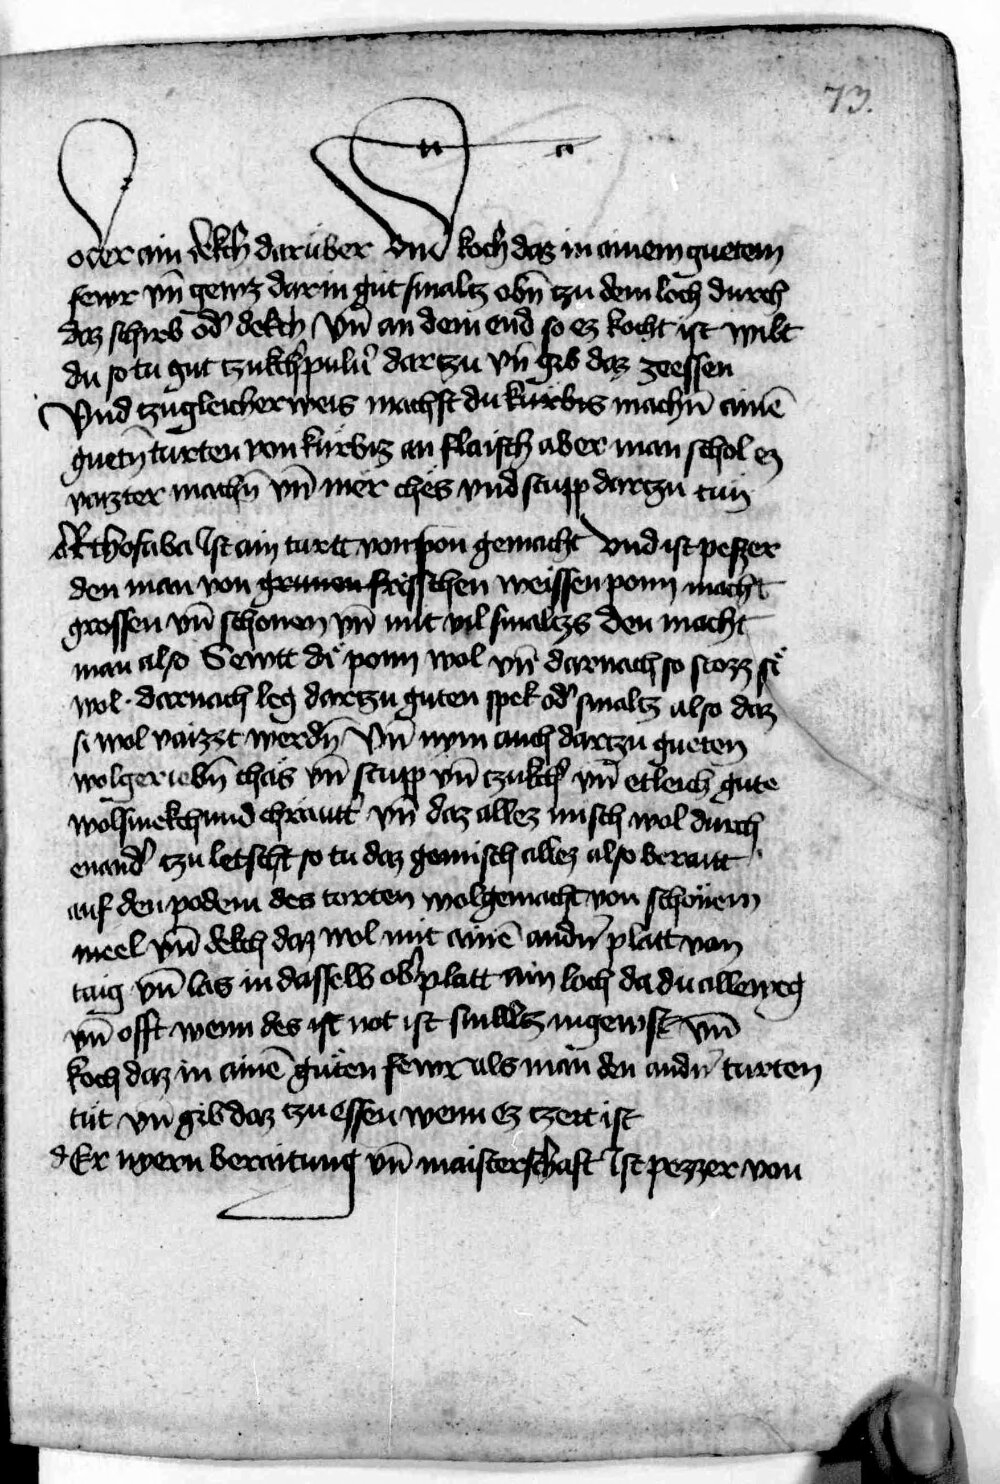 73.
oder ain dekch darüber vnd koch daz in ainem guetem
fewr vn̄ gewz darin gut smaltz obn̄ tzu dem loch durch
daz schirb od' dekch Vn̄ an dem end so ez kocht ist wilt
du so tu gut tzukch'puluer dartzu vn̄ gib daz zeessen
Vnd tzugleicherweis machst du kürbis machn̄ ainē
guetn̄ turten von kürbiz an flaisch aber man schol ez
vaizter machn̄ vn̄ mer ches vnd stupp dartzu tun
Ist ain turtt von pon gemacht Vnd ist pesser
den man von grunen frisschen weissen ponn macht
grossen vn̄ schonen vn̄ mit vil smaltzs den macht
man also Sewtt di ponn wol vn̄ darnach so stozz si
wol · darnach leg dartzu guten spek od' smaltz also daz
si wol vaizzt werdn̄ Vn̄ nym auch dartzu gueten
wolgeriebn̄ chäs vn̄ stupp vn̄ tzukch' vn̄ etleich gute
wolsmekchund chräutt' vn̄ daz allez misch wol durch
enand' tzu letscht so tu daz gemisch allez also beraitt
auf den podem des torten wolgemacht von schönem
meel vn̄ dekch daz wol mit ainē andn' platt von
taig vn̄ las in dasselb ob' platt ain loch da du alleweg
vn̄ offt wenn des ist not ist smaltz ingewst vn̄
koch daz in ainē guten fewr als man den andn' turten
tut vn̄ gib daz tzu essen wenn ez tzeit ist
dEr nyern beraitung vn̄ maisterschaft Ist pezzer von